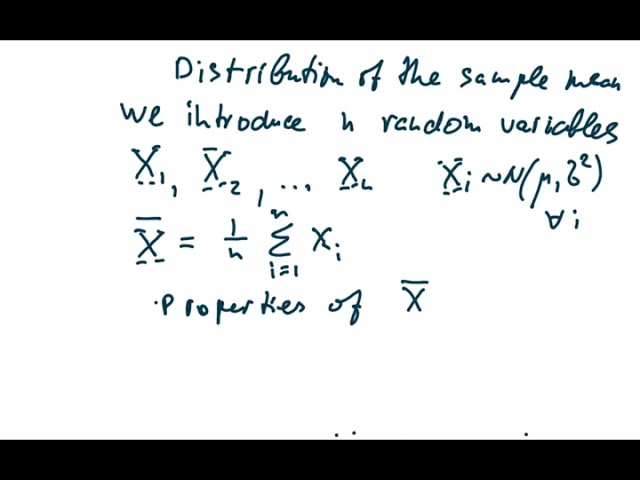 Distribution of the sample mean
we introduce n random variables
X₁, X₂, ... Xₙ Xᵢ ~ N(μ, σ²)
∀ i
X̄ = 1/n ∑ᵢ₌₁ⁿ xᵢ
· Properties of X̄